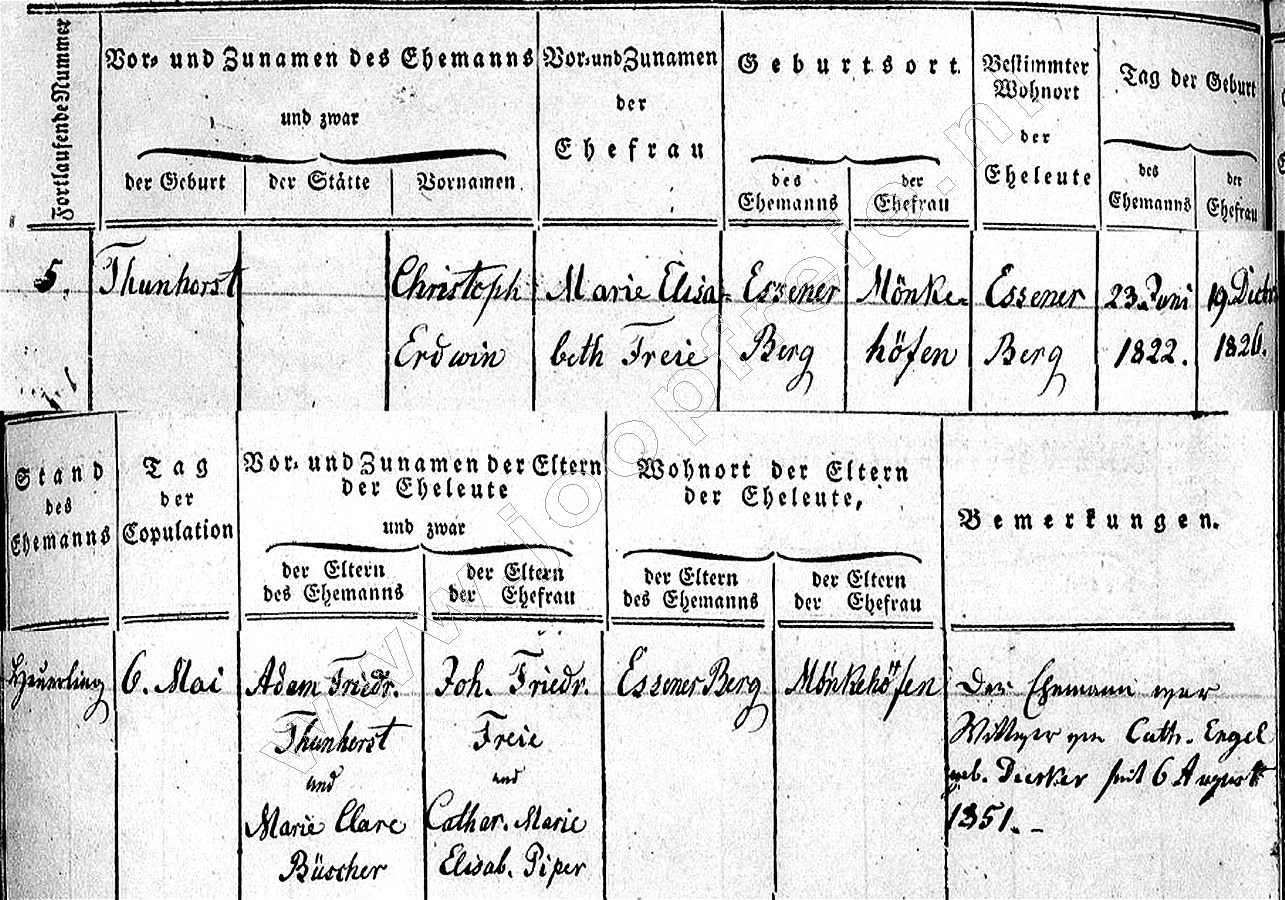 Fortlaufende Nummer
Vor- und Zunamen des Ehemanns
und zwar
der Geburt
der Stätte
Vornamen
Vor- und Zunamen
der
Ehefrau
Geburtsort.
des
Ehemanns
der
Ehefrau
Bestimmter
Wohnort
der
Eheleute
Tag der Geburt
des
Ehemanns
der
Ehefrau
5.
Thunhorst
Christoph
Erdwin
Marie Elisa-
beth Freie
Essener
Berg
Mönke-
höfen
Essener
Berg
23. Juni
1822.
19. Decbr
1826.
Stand
des
Ehemanns
Tag
der
Copulation
Vor- und Zunamen der Eltern
der Eheleute
und zwar
der Eltern
des Ehemanns
der Eltern
der Ehefrau
Wohnort der Eltern
der Eheleute,
der Eltern
des Ehemanns
der Eltern
der Ehefrau
Bemerkungen.
Heuerling
6. Mai
Adam Friedr.
Thunhorst
und
Marie Clare
Büscher
Joh. Friedr.
Freie
und
Cathar. Marie
Elisab. Piper
Essener Berg
Mönkehöfen
Der Ehemann war
Wittwer von Cath. Engel
geb. Diecker seit 6 August
1851.-
www.joopfreie.nl